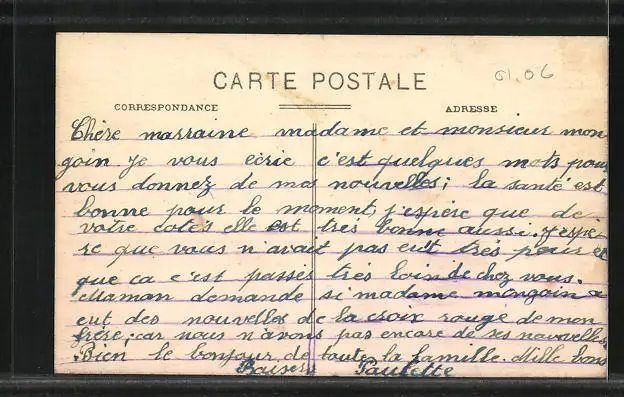 01.06
CARTE POSTALE
CORRESPONDANCE
ADRESSE
Chère marraine madame et monsieur mon
goin je vous ecrie c'est quelques mots pour
vous donnez de mas nouvelles; la santé est
bonne pour le moment j'espère que de
votre cotés elle est très bonne aussi. J'espè
re que vous n'avait pas eut très peur et
que ca c'est passés très loin de chez vous.
Maman demande si madame mongoin a
eut des nouvelles de la croix rouge de mon
frère; car nous n'avons pas encore de ses nouvelles
Bien le bonjour de toute la famille. Mille bons
Baisers Paulette